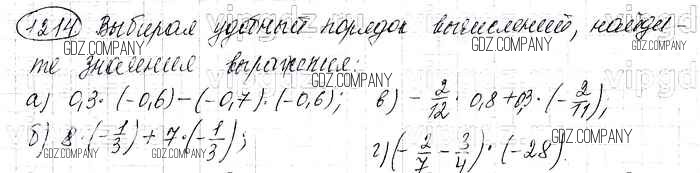 1214 Выбирая удобный порядок вычислений, найди-
те значения выражения:
а) 0,3·(-0,6)-(-0,7)·(-0,6); в) -2/12·0,8+0,3·(-2/11);
б) 8·(-1/3)+7·(-1/3); г) (-2/7-3/4)·(-28).
GDZ.COMPANY
GDZ.COMPANY
GDZ.COMPANY
GDZ.COMPANY
GDZ.COMPANY
GDZ.COMPANY
GDZ.COMPANY
GDZ.COMPANY
GDZ.COMPANY